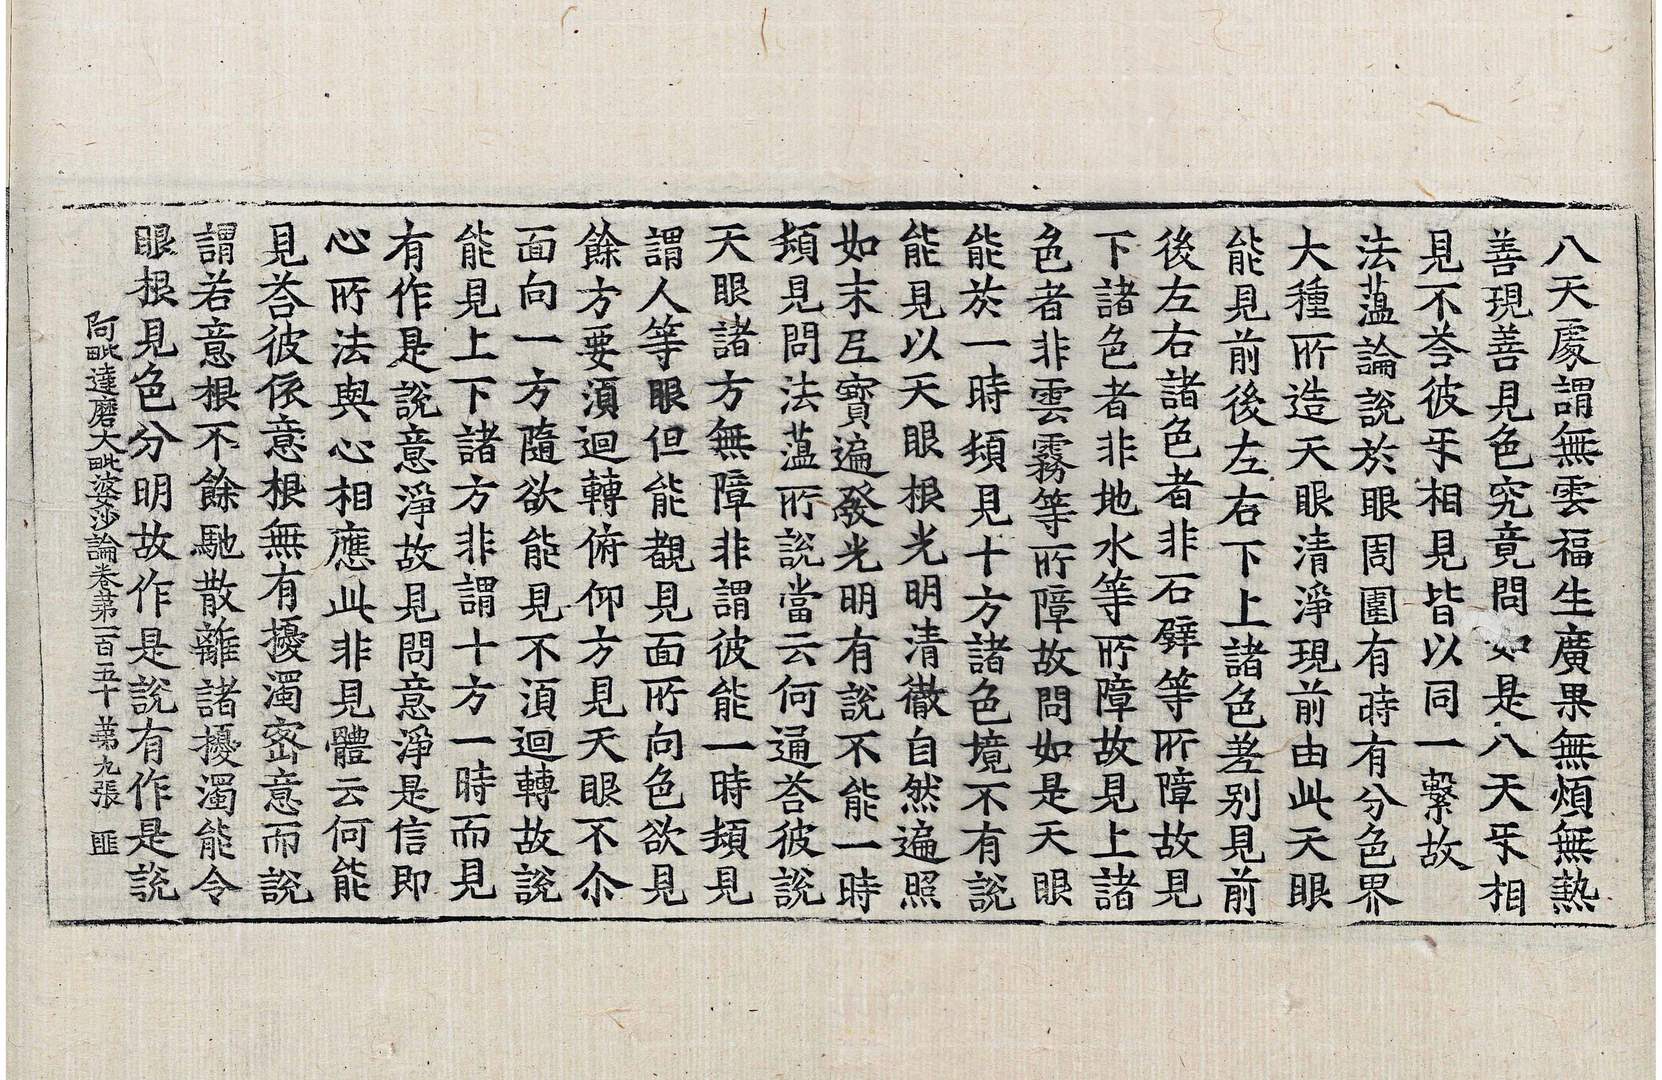 八天處謂無雲福生廣果無煩無熱
善現善見色究竟問如是八天㸦相
見不荅彼㸦相見皆以同一繫故
法薀論說於眼周圍有時有分色界
大種所造天眼清淨現前由此天眼
能見前後左右下上諸色差别見前
後左右諸色者非石壁等所障故見
下諸色者非地水等所障故見上諸
色者非雲霧等所障故問如是天眼
能於一時頻見十方諸色境不有說
能見以天眼根光明清徹自然遍照
如末𡰱寶遍發光明有說不能一時
頻見問法薀所說當云何通荅彼說
天眼諸方無障非謂彼能一時頻見
謂人等眼但能覩見面所向色欲見
餘方要須迴轉俯仰方見天眼不尒
面向一方隨欲能見不須迴轉故說
能見上下諸方非謂十方一時而見
有作是說意淨故見問意淨是信即
心所法與心相應此非見體云何能
見荅彼依意根無有擾濁宻意而說
謂若意根不餘馳散離諸擾濁能令
眼根見色分明故作是說有作是說
阿毗達磨大毗婆沙論卷第一百五十 第九張 匪